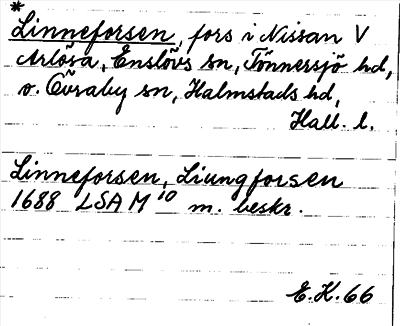 *
Linneforsen, fors i Nissan V
Årlösa, Enslövs sn, Tönnersjö hd,
o. Övraby sn, Halmstads hd,
Hall. l.
Linneforsen, Liungforsen
1688 LSA M 10 m. beskr.
E.H. 66